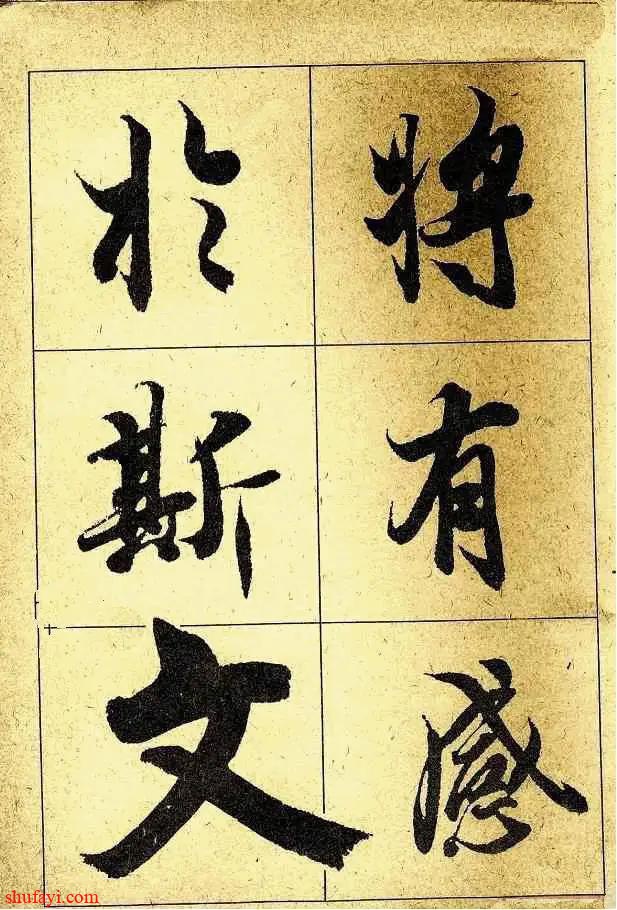 将有感
於斯文
shufayi.com